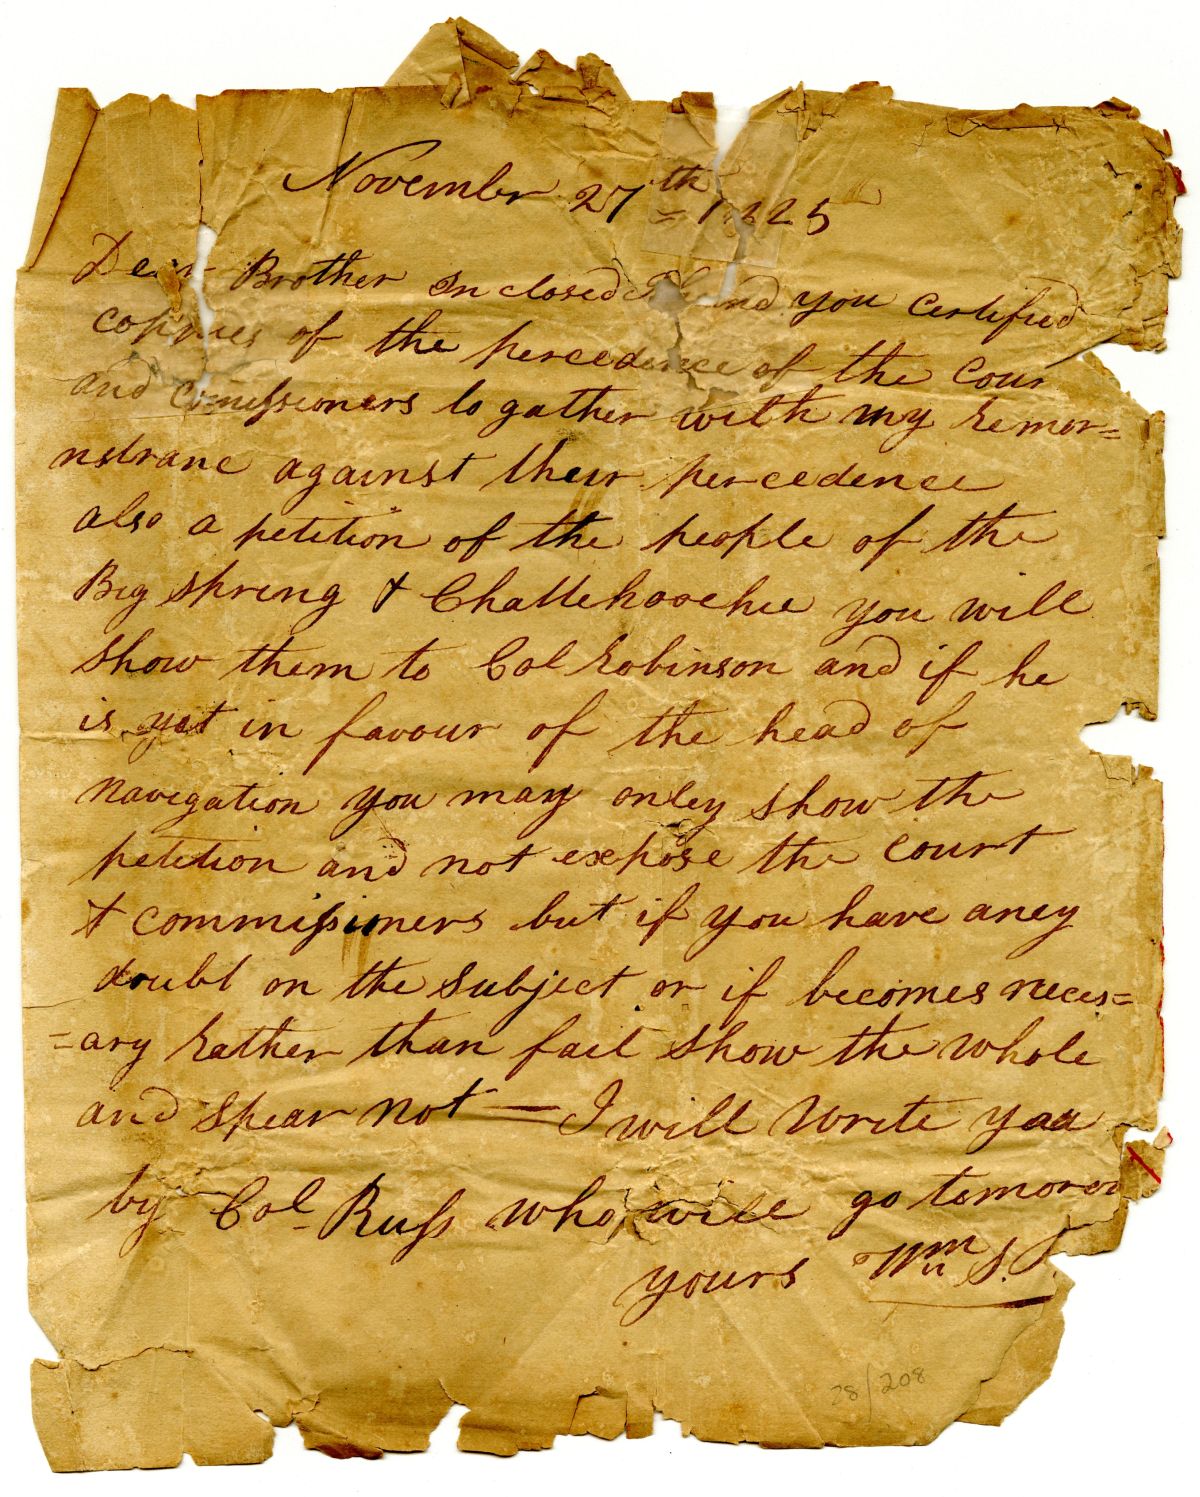 November 27th = 1825
Dear Brother Inclosed I hand you certified
coppies of the percedence of the Cour
and Comissioners to gather with my Remor=
nstranc against their percedence
also a petition of the people of the
Big Spring & Chattehoochee you will
Show them to Col Robinson and if he
is yet in favour of the head of
Navigation you may onley show the
petition and not expose the court
& Commissioners but if you have aney
doubt on the Subject or if becomes neces=
=ary Rather than fail Show the whole
and Spear not — I will Write you
by Col Russ who will go temorow
yours Wm S.
28/208